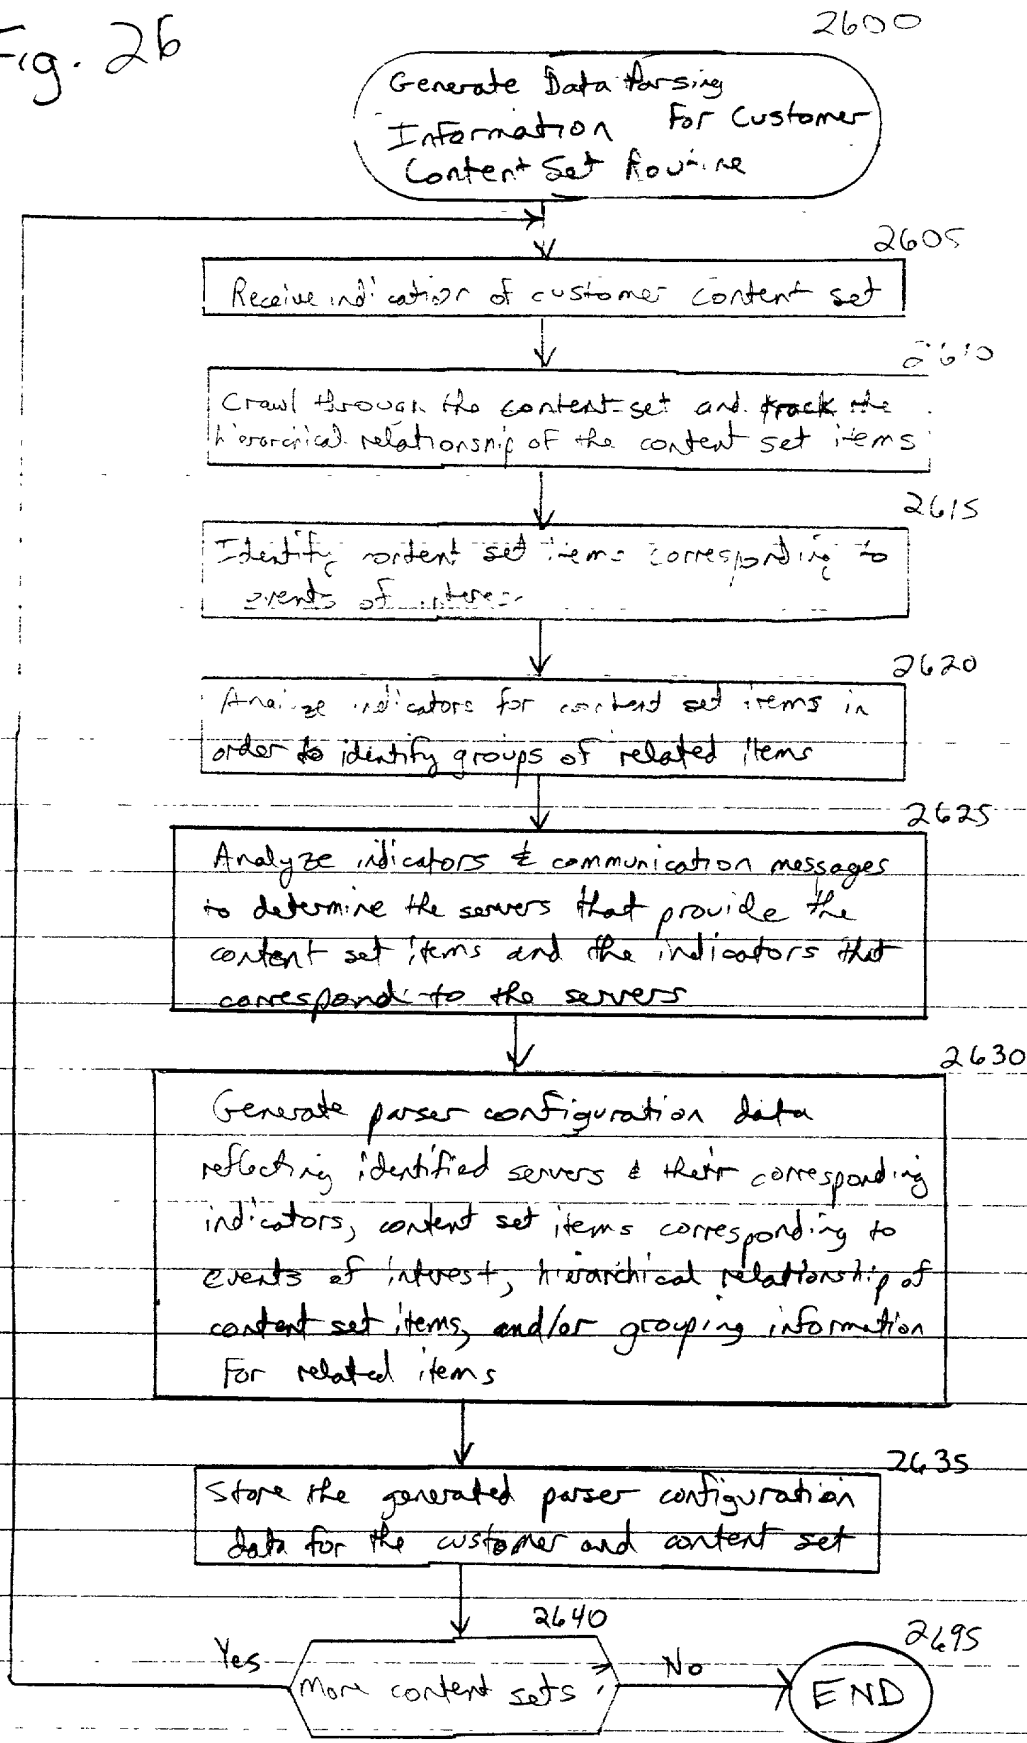 Fig. 26
2600
Generate Data Parsing
Information For Customer
Content Set Routine
2605
Receive indication of customer content set
2610
Crawl through the content set and track the
hierarchical relationship of the content set items
2615
Identify content set items corresponding to
events of interest
2620
Analize indicators for content set items in
order to identify groups of related items
2625
Analyze indicators & communication messages
to determine the servers that provide the
content set items and the indicators that
correspond to the servers
2630
Generate parser configuration data
reflecting identified servers & their corresponding
indicators, content set items corresponding to
events of interest, hierarchical relationship of
content set items, and/or grouping information
For related items
2635
Store the generated parser configuration
data for the customer and content set
2640
2695
Yes
More content sets ?
No
END